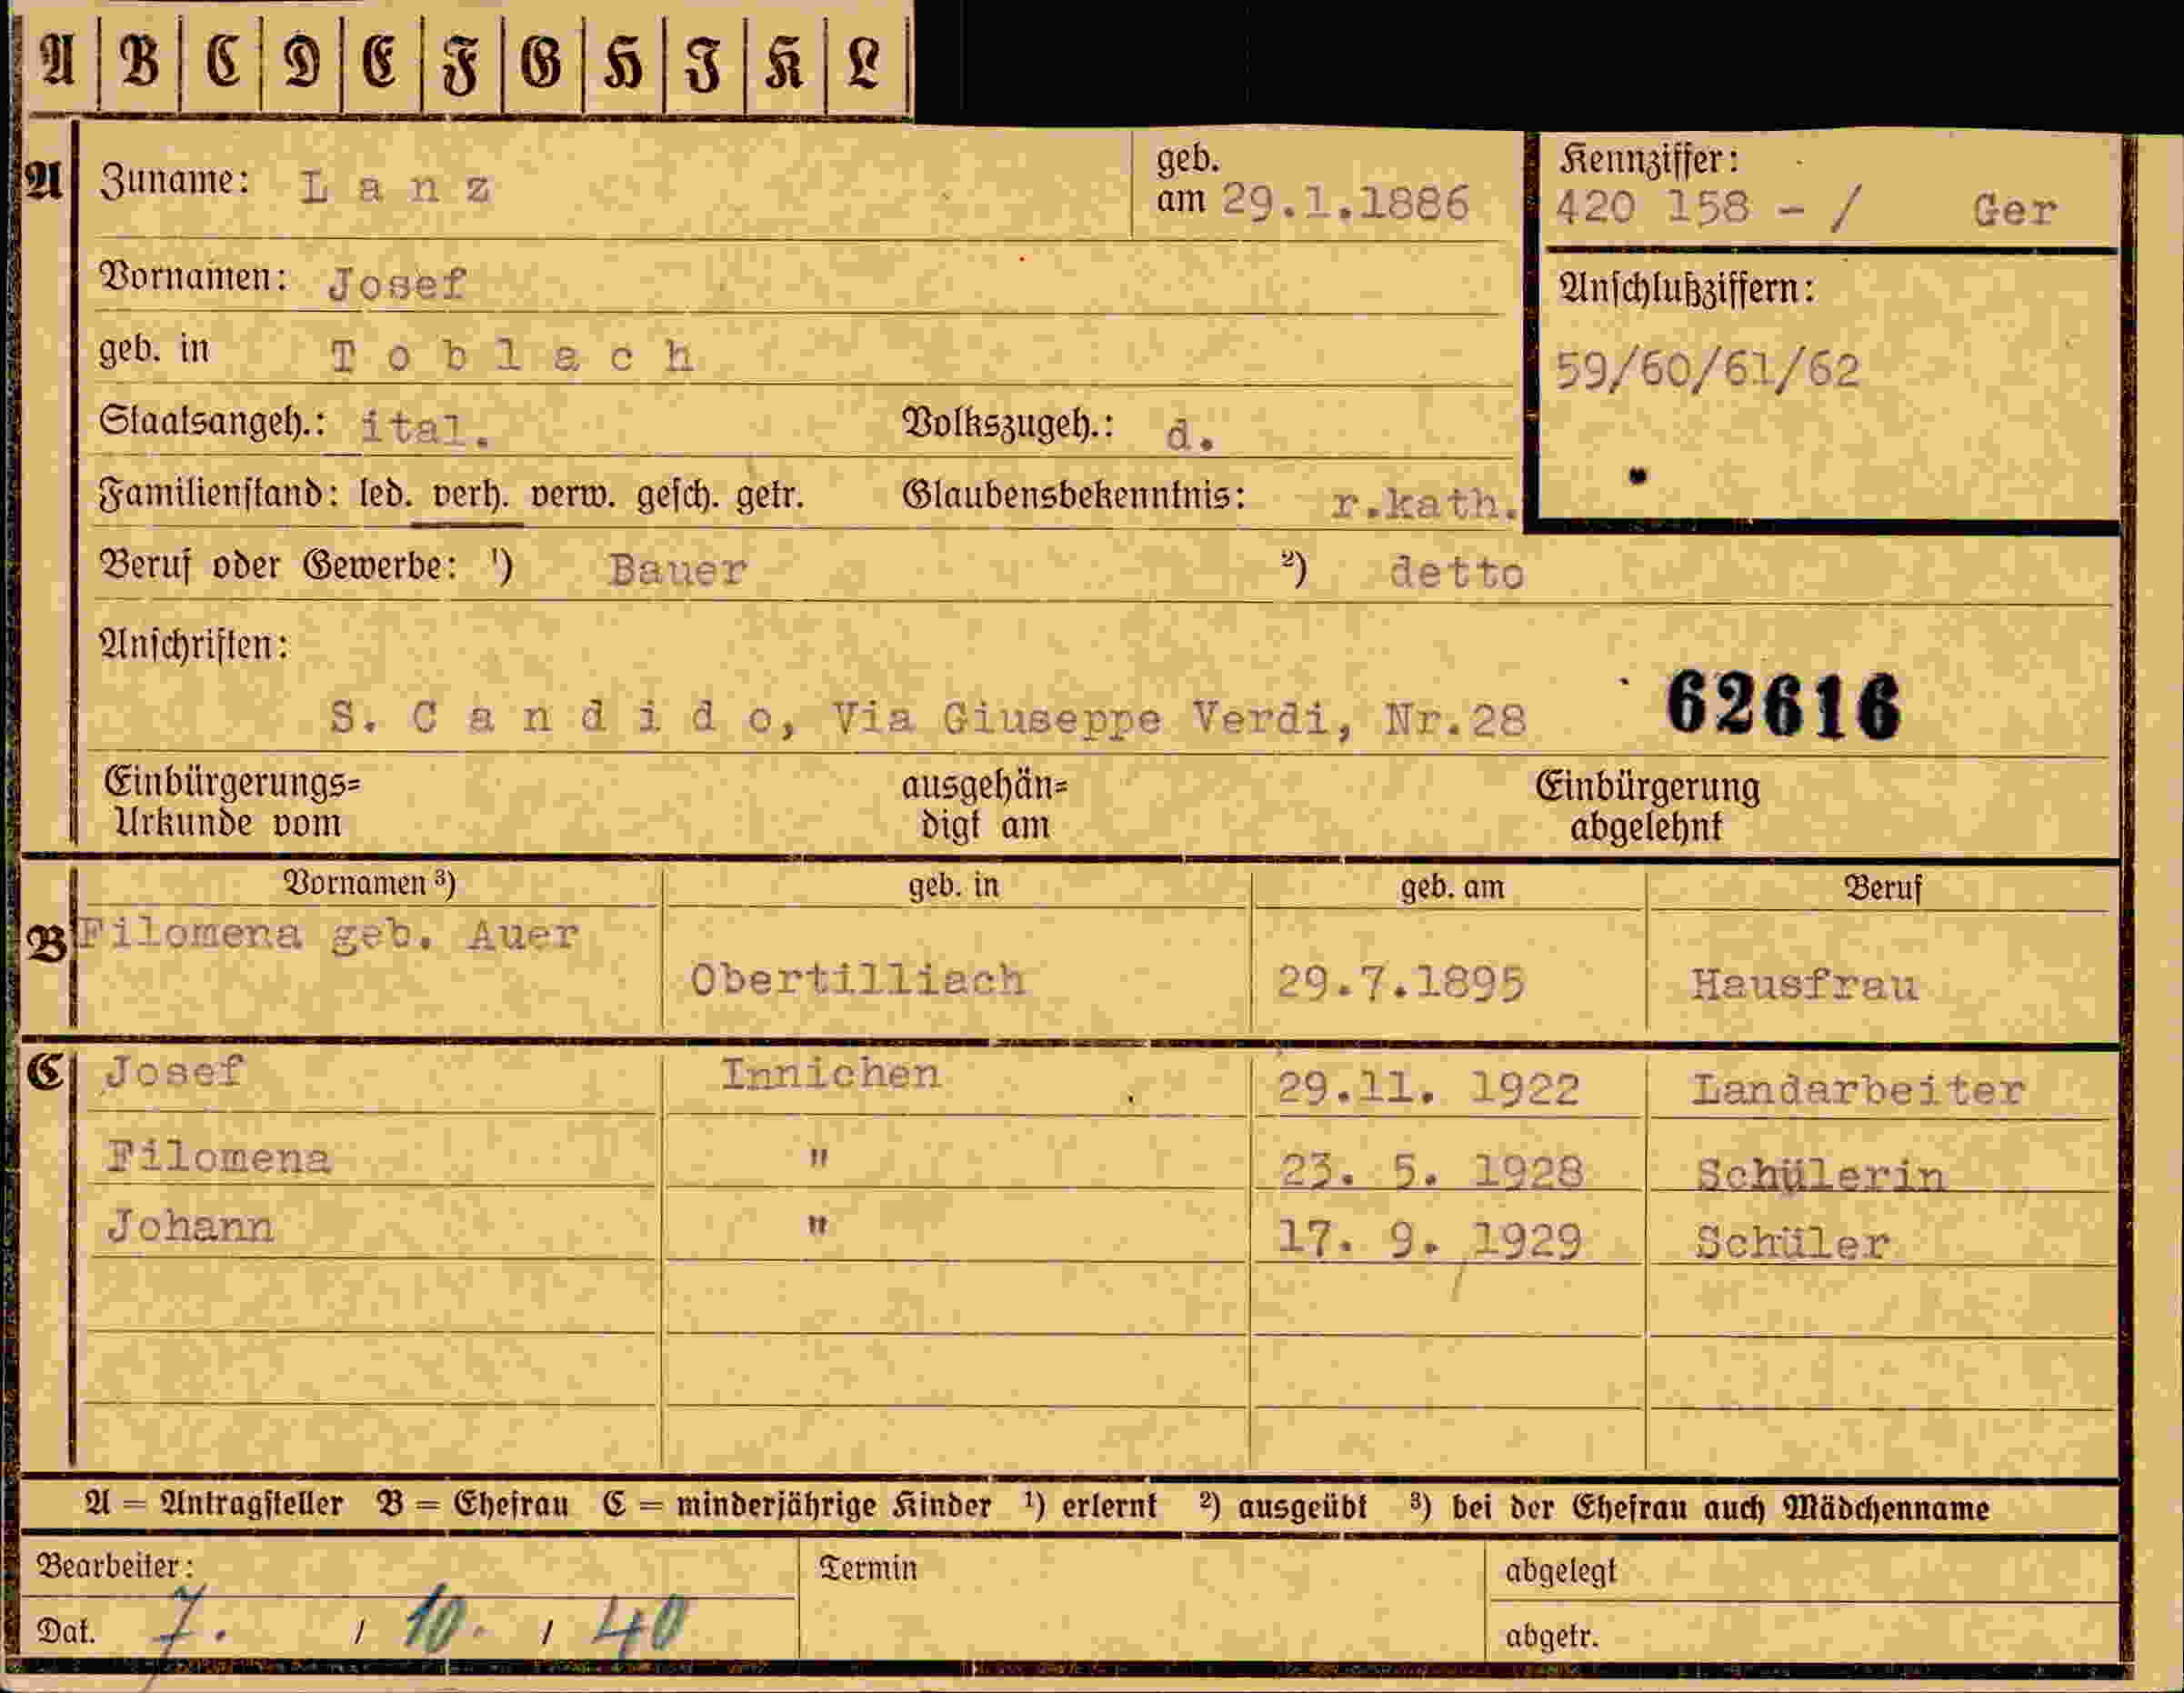 A B C D E F G H I K L
A Zuname: Lanz geb. am 29.1.1886 Kennziffer:
420 158 - / Ger
Vornamen: Josef Anschlußziffern:
geb. in Toblach 59/60/61/62
Staatsangeh.: ital. Volkszugeh.: d.
Familienstand: led. verh. verw. gesch. getr. Glaubensbekenntnis: r.kath.
Beruf oder Gewerbe: ¹) Bauer ²) detto
Anschriften:
S. Candido, Via Giuseppe Verdi, Nr.28 62616
Einbürgerungs= ausgehän= Einbürgerung
Urkunde vom digt am abgelehnt
Vornamen ³) geb. in geb. am Beruf
B Filomena geb. Auer
Obertilliach 29.7.1895 Hausfrau
C Josef Innichen 29.11. 1922 Landarbeiter
Filomena " 23. 5. 1928 Schülerin
Johann " 17. 9. 1929 Schüler
A = Antragsteller B = Ehefrau C = minderjährige Kinder ¹) erlernt ²) ausgeübt ³) bei der Ehefrau auch Mädchenname
Bearbeiter: Termin abgelegt
Dat. 7. / 10. / 40 abgetr.